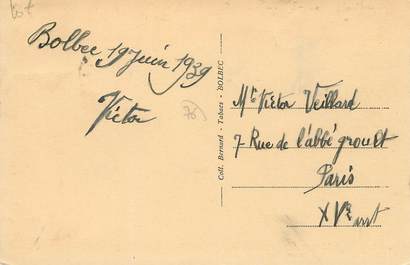 Bolbec 19 juin 1939
Victor
76
Coll. Bernard - Tabacs - BOLBEC
Mr Victor Veillard
7 Rue de l'abbé groult
Paris
XVe arrt